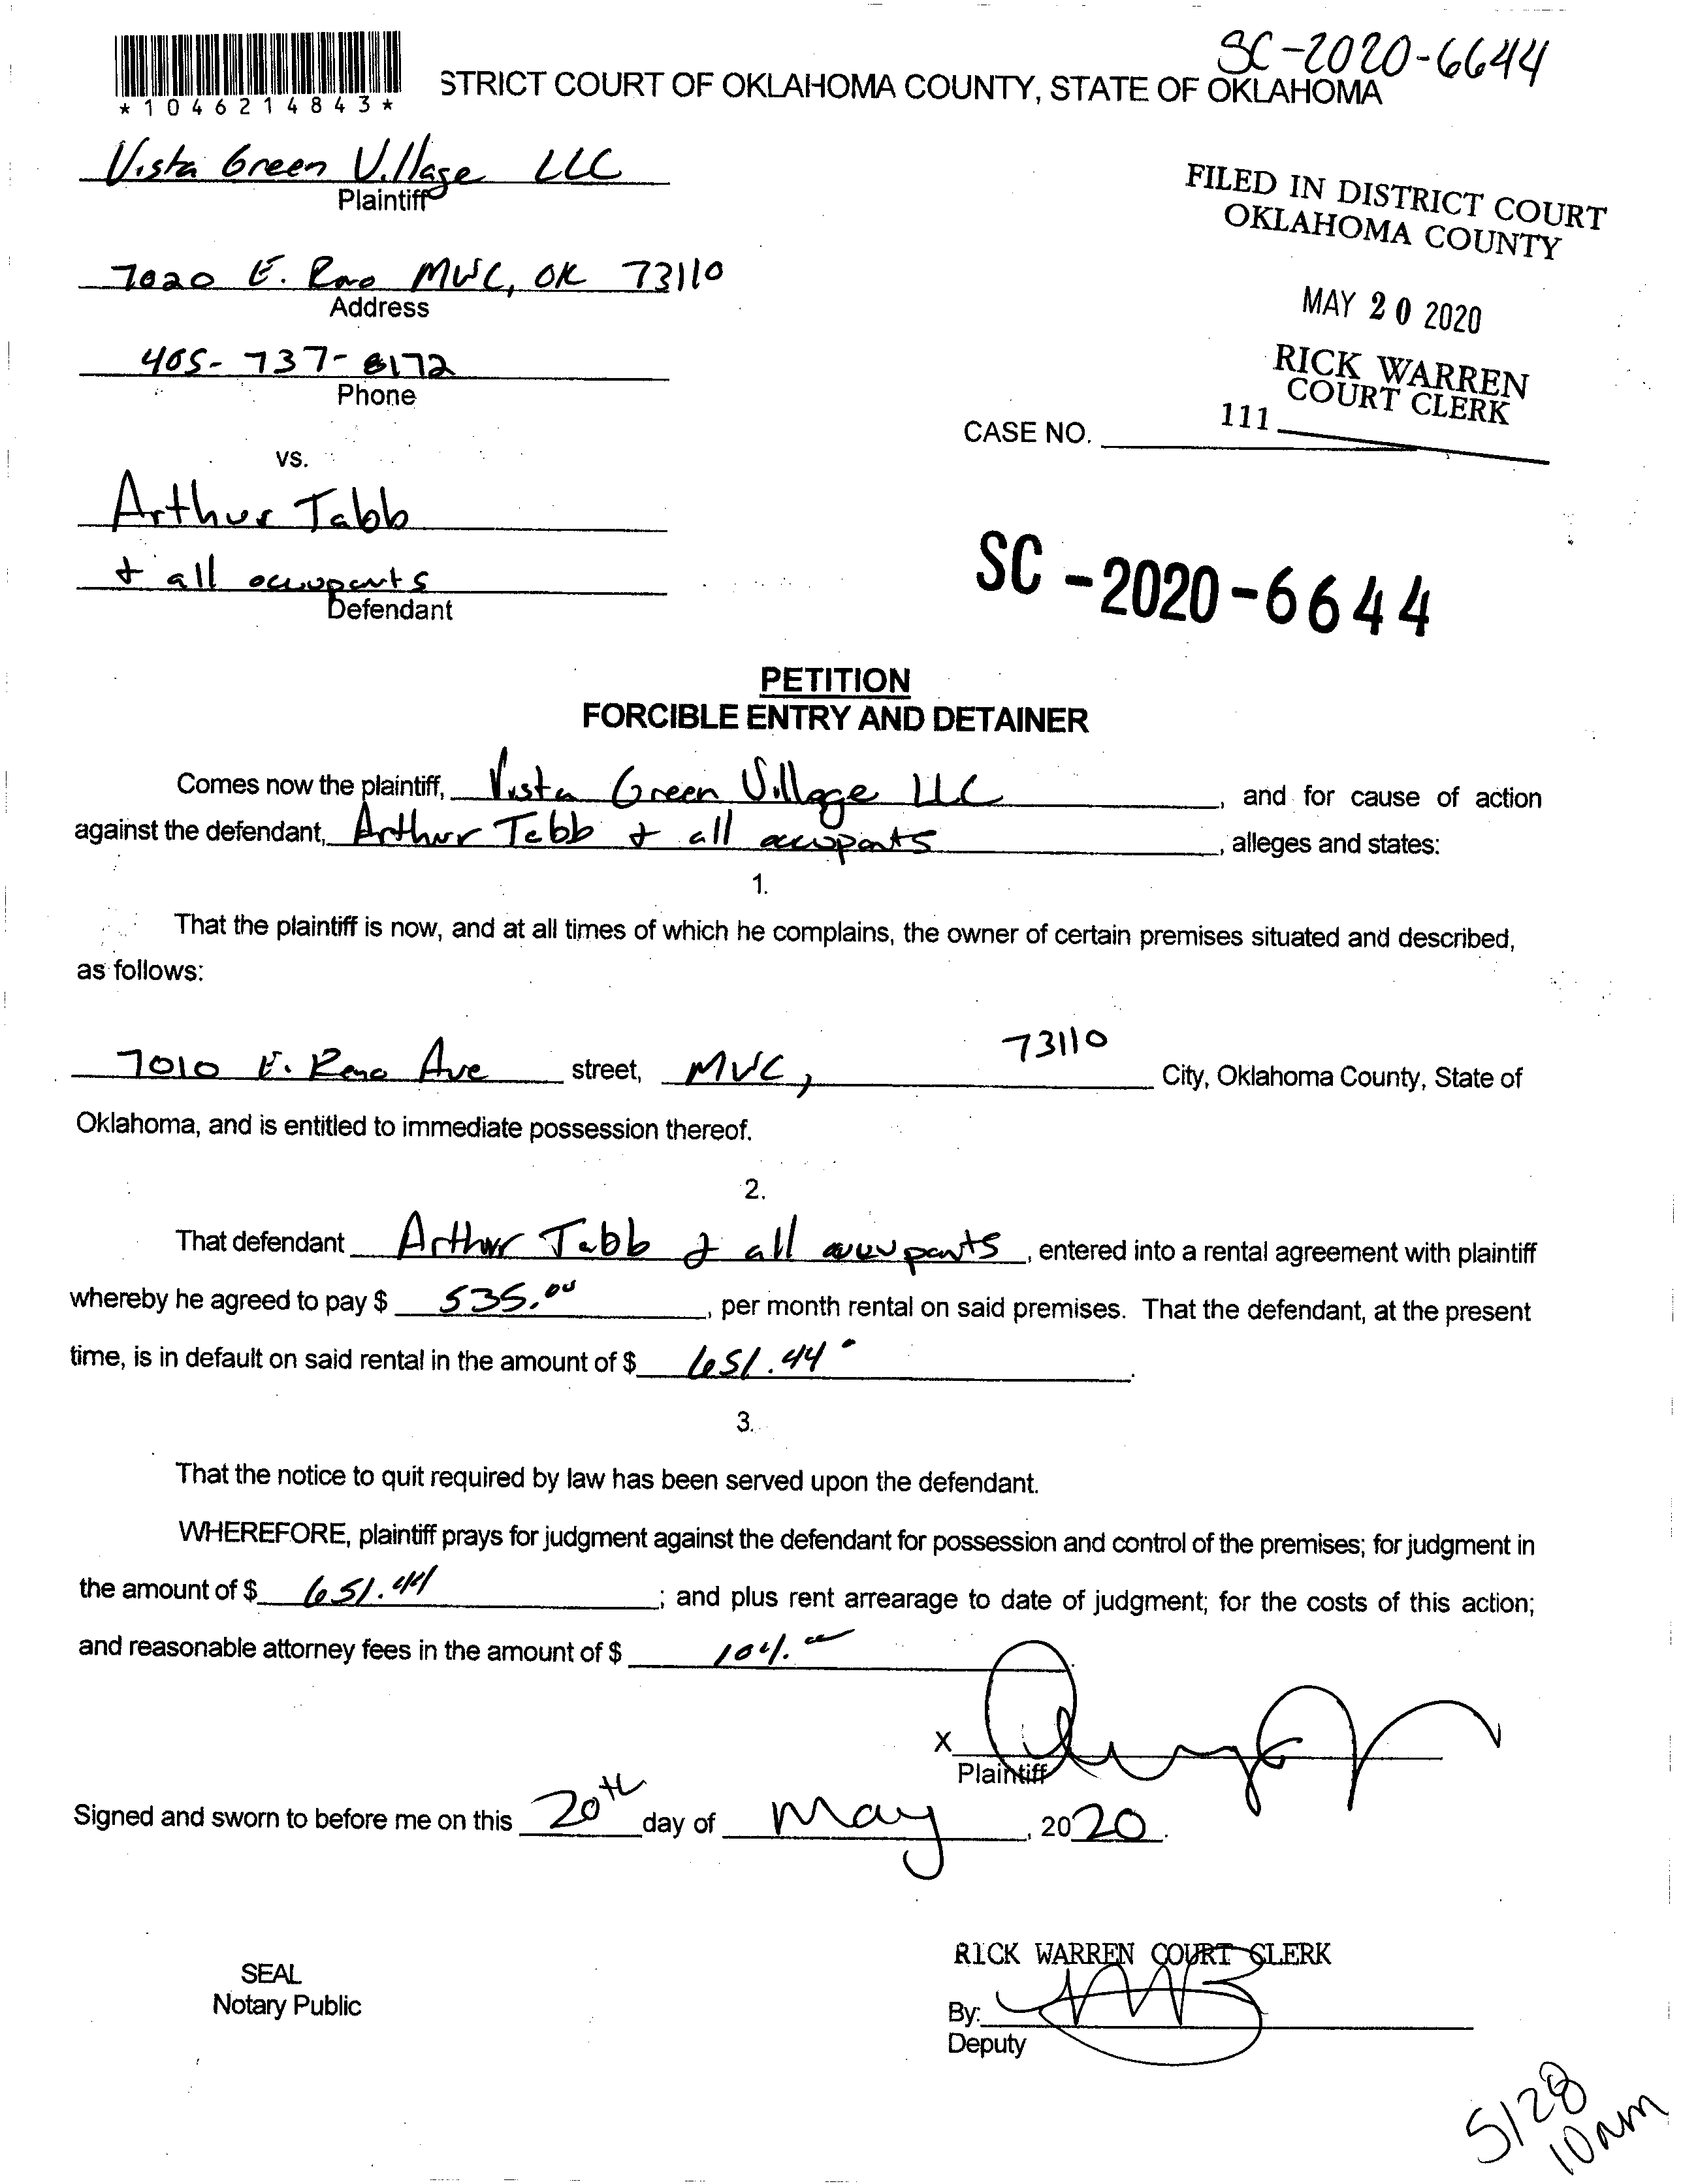 SC-2020-6644
*1046214843*
STRICT COURT OF OKLAHOMA COUNTY, STATE OF OKLAHOMA
Vista Green Village LLC
Plaintiff
FILED IN DISTRICT COURT
OKLAHOMA COUNTY
7020 E. Reno MWC, OK 73110
Address
MAY 20 2020
405-737-8172
Phone
RICK WARREN
COURT CLERK
111
CASE NO.
vs.
Arthur Tabb
+ all occupants
Defendant
SC-2020-6644
PETITION
FORCIBLE ENTRY AND DETAINER
Comes now the plaintiff, Vista Green Village LLC, and for cause of action
against the defendant, Arthur Tabb + all occupants, alleges and states:
1.
That the plaintiff is now, and at all times of which he complains, the owner of certain premises situated and described,
as follows:
7010 E. Reno Ave street, MWC, 73110 City, Oklahoma County, State of
Oklahoma, and is entitled to immediate possession thereof.
2.
That defendant Arthur Tabb + all occupants, entered into a rental agreement with plaintiff
whereby he agreed to pay $ 535.00, per month rental on said premises. That the defendant, at the present
time, is in default on said rental in the amount of $ 651.44.
3.
That the notice to quit required by law has been served upon the defendant.
WHEREFORE, plaintiff prays for judgment against the defendant for possession and control of the premises; for judgment in
the amount of $ 651.44; and plus rent arrearage to date of judgment; for the costs of this action;
and reasonable attorney fees in the amount of $ 104.00
X
Plaintiff
Signed and sworn to before me on this 20th day of May, 2020.
RICK WARREN COURT CLERK
SEAL
Notary Public
By:
Deputy
5/28
10am